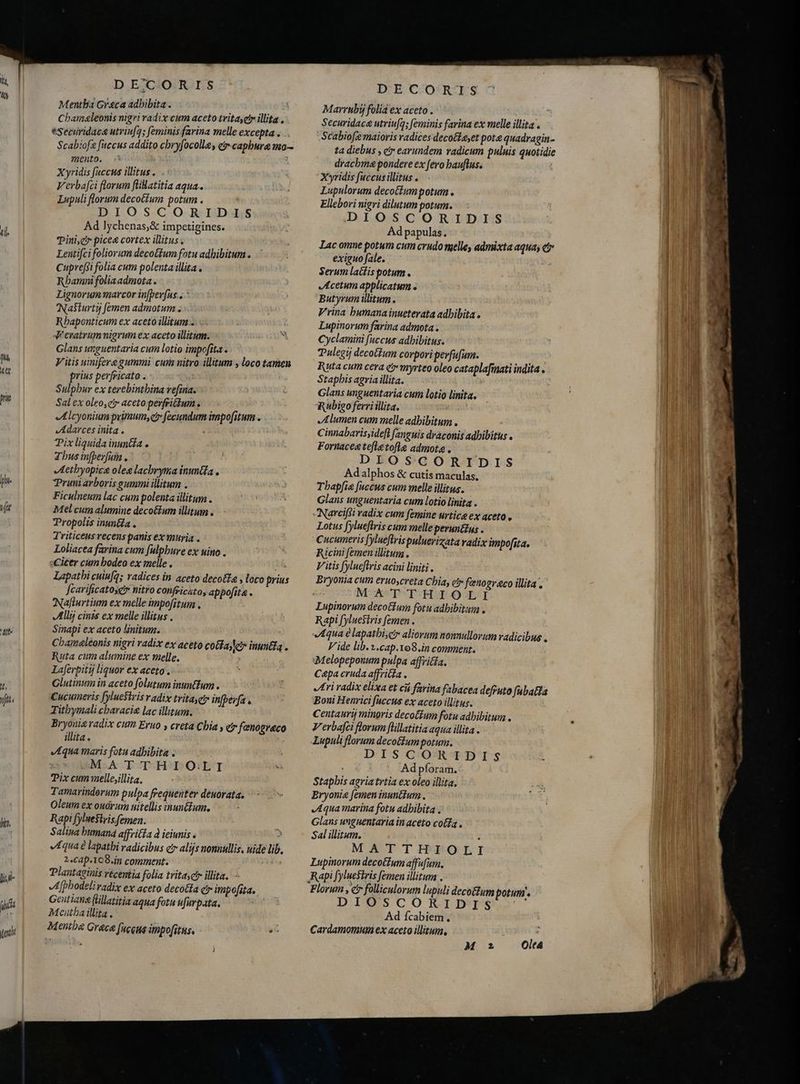 DECORIS
Mentha Græca adhibita.
Chamæleonis nigri radix cum aceto trita, & illita.
Securidacæ utriusq; seminis farina melle excepta.
Scabiosæ succus addito chrysocolla, & caphuræ mo-
mento.
Xyridis succus illitus.
Verbasci florum stillatitia aqua.
Lupuli florum decoctum potum.
DIOSCORIDIS
Ad lychenas, & impetigines.
Pini, & piceæ cortex illitus.
Lentisci foliorum decoctum fotu adhibitum.
Cupressi folia cum polenta illita.
Rhamni folia admota.
Lignorum marcor inspersus.
Nasturtij semen admotum.
Rhaponticum ex aceto illitum.
Veratrum nigrum ex aceto illitum.
Glans unguentaria cum lotio imposita.
Vitis uiniferæ gummi cum nitro illitum, loco tamen
prius perfricato.
Sulphur ex terebinthina resina.
Sal ex oleo, & aceto perfrictum.
Alcyonium primum, & secundum impositum.
Adarces inita.
Pix liquida inuncta.
Thus inspersum.
Aethyopicæ oleæ lachryma inuncta.
Pruni arboris gummi illitum.
Ficulneum lac cum polenta illitum.
Mel cum alumine decoctum illitum.
Propolis inuncta.
Triticeus recens panis ex muria.
Loliacea farina cum sulphure ex uino.
Cicer cum hodeo ex melle.
Lapathi cuiusq; radices in aceto decoctæ, loco prius
scarificato, & nitro confricato, appositæ.
Nasturtium ex melle impositum.
Allij cinis ex melle illitus.
Sinapi ex aceto linitum.
Chamæleonis nigri radix ex aceto cocta, & inuncta.
Ruta cum alumine ex melle.
Laserpitij liquor ex aceto.
Glutinum in aceto solutum inunctum.
Cucumeris syluestris radix trita, & inspersa.
Tithymali characiæ lac illitum.
Bryoniæ radix cum Eruo, creta Chia, & fœnogræco
illita.
Aqua maris fotu adhibita.
MATTHIOLI
Pix cum melle, illita.
Tamarindorum pulpa frequenter deuorata.
Oleum ex ouorum uitellis inunctum.
Rapi syluestris semen.
Saliua humana affricta à ieiunis.
Aqua è lapathi radicibus & alijs nonnullis, uide lib.
2.cap.108.in comment.
Plantaginis recentia folia trita, & illita.
Asphodeli radix ex aceto decocta & imposita.
Gentianæ stillatitia aqua fotu usurpata.
Mentha illita.
Menthæ Græcæ succus impositus.
DECORIS
Marrubij folia ex aceto.
Securidacæ utriusq; seminis farina ex melle illita.
Scabiosæ maioris radices decoctæ, et potæ quadragin-
ta diebus, & earundem radicum puluis quotidie
drachmæ pondere ex sero haustus.
Xyridis succus illitus.
Lupulorum decoctum potum.
Ellebori nigri dilutum potum.
DIOSCORIDIS
Ad papulas.
Lac omne potum cum crudo melle, admixta aqua, &
exiguo sale.
Serum lactis potum.
Acetum applicatum.
Butyrum illitum.
Vrina humana inueterata adhibita.
Lupinorum farina admota.
Cyclamini succus adhibitus.
Pulegij decoctum corpori perfusum.
Ruta cum cera & myrteo oleo cataplasmati indita.
Staphis agria illita.
Glans unguentaria cum lotio linita.
Rubigo ferri illita.
Alumen cum melle adhibitum.
Cinnabaris, idest sanguis draconis adhibitus.
Fornaceæ testæ tostæ admotæ.
DIOSCORIDIS
Ad alphos & cutis maculas.
Thapsiæ succus cum melle illitus.
Glans unguentaria cum lotio linita.
Narcissi radix cum semine urticæ ex aceto.
Lotus syluestris cum melle perunctus.
Cucumeris syluestris puluerizata radix imposita.
Ricini semen illitum.
Vitis syluestris acini liniti.
Bryonia cum eruo, creta Chia, & fœnogræco illita.
MATTHIOLI
Lupinorum decoctum fotu adhibitum.
Rapi syluestris semen.
Aqua è lapathi, & aliorum nonnullorum radicibus.
Vide lib.2.cap.108.in comment.
Melopeponum pulpa affricta.
Cæpa cruda affricta.
Ari radix elixa et cū farina fabacea defruto subacta
Boni Henrici succus ex aceto illitus.
Centaurij minoris decoctum fotu adhibitum.
Verbasci florum stillatitia aqua illita.
Lupuli florum decoctum potum.
DISCORIDIS
Ad psoram.
Staphis agria trtia ex oleo illita.
Bryoniæ semen inunctum.
Aqua marina fotu adhibita.
Glans unguentaria in aceto cocta.
Sal illitum.
MATTHIOLI
Lupinorum decoctum affusum.
Rapi syluestris semen illitum.
Florum, & folliculorum lupuli decoctum potum.
DIOSCORIDIS
Ad scabiem.
Cardamomum ex aceto illitum.
M 2 Oleæ